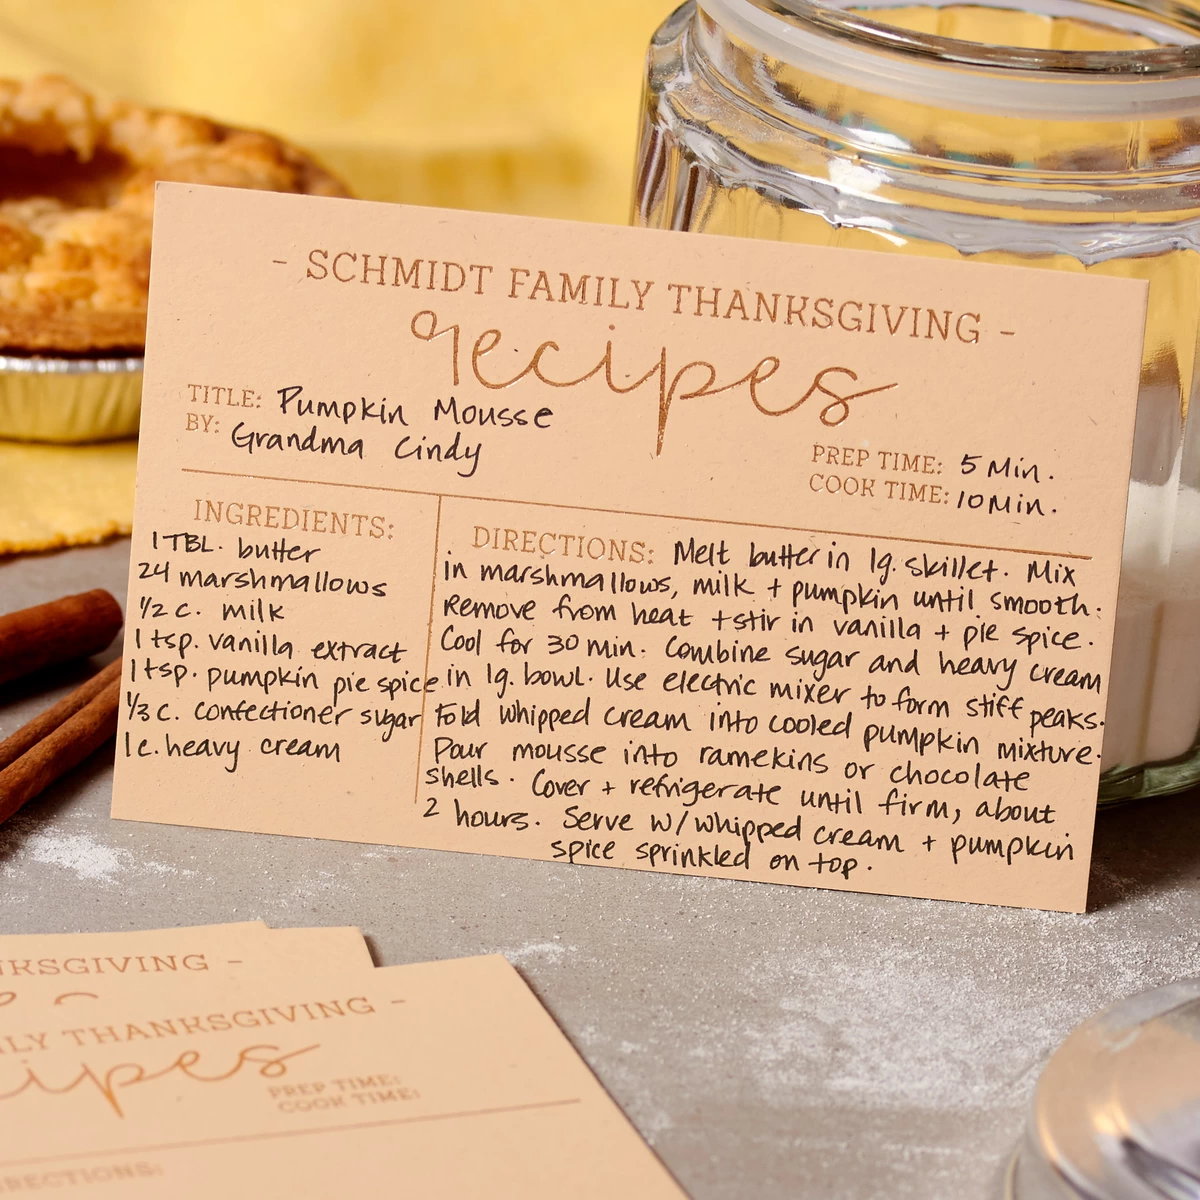 - SCHMIDT FAMILY THANKSGIVING -
recipes
TITLE: Pumpkin Mousse
BY: Grandma Cindy
PREP TIME: 5 Min.
COOK TIME: 10 Min.
INGREDIENTS:
1 TBL. butter
24 marshmallows
1/2 c. milk
1 tsp. vanilla extract
1 tsp. pumpkin pie spice
1/3 c. confectioner sugar
1 c. heavy cream
DIRECTIONS: Melt butter in lg. skillet. Mix
in marshmallows, milk + pumpkin until smooth.
Remove from heat + stir in vanilla + pie spice.
Cool for 30 min. Combine sugar and heavy cream
in lg. bowl. Use electric mixer to form stiff peaks.
Fold whipped cream into cooled pumpkin mixture.
Pour mousse into ramekins or chocolate
shells. Cover + refrigerate until firm, about
2 hours. Serve w/ whipped cream + pumpkin
spice sprinkled on top.
NKSGIVING -
ILY THANKSGIVING -
ipes
PREP TIME:
COOK TIME:
RECTIONS: